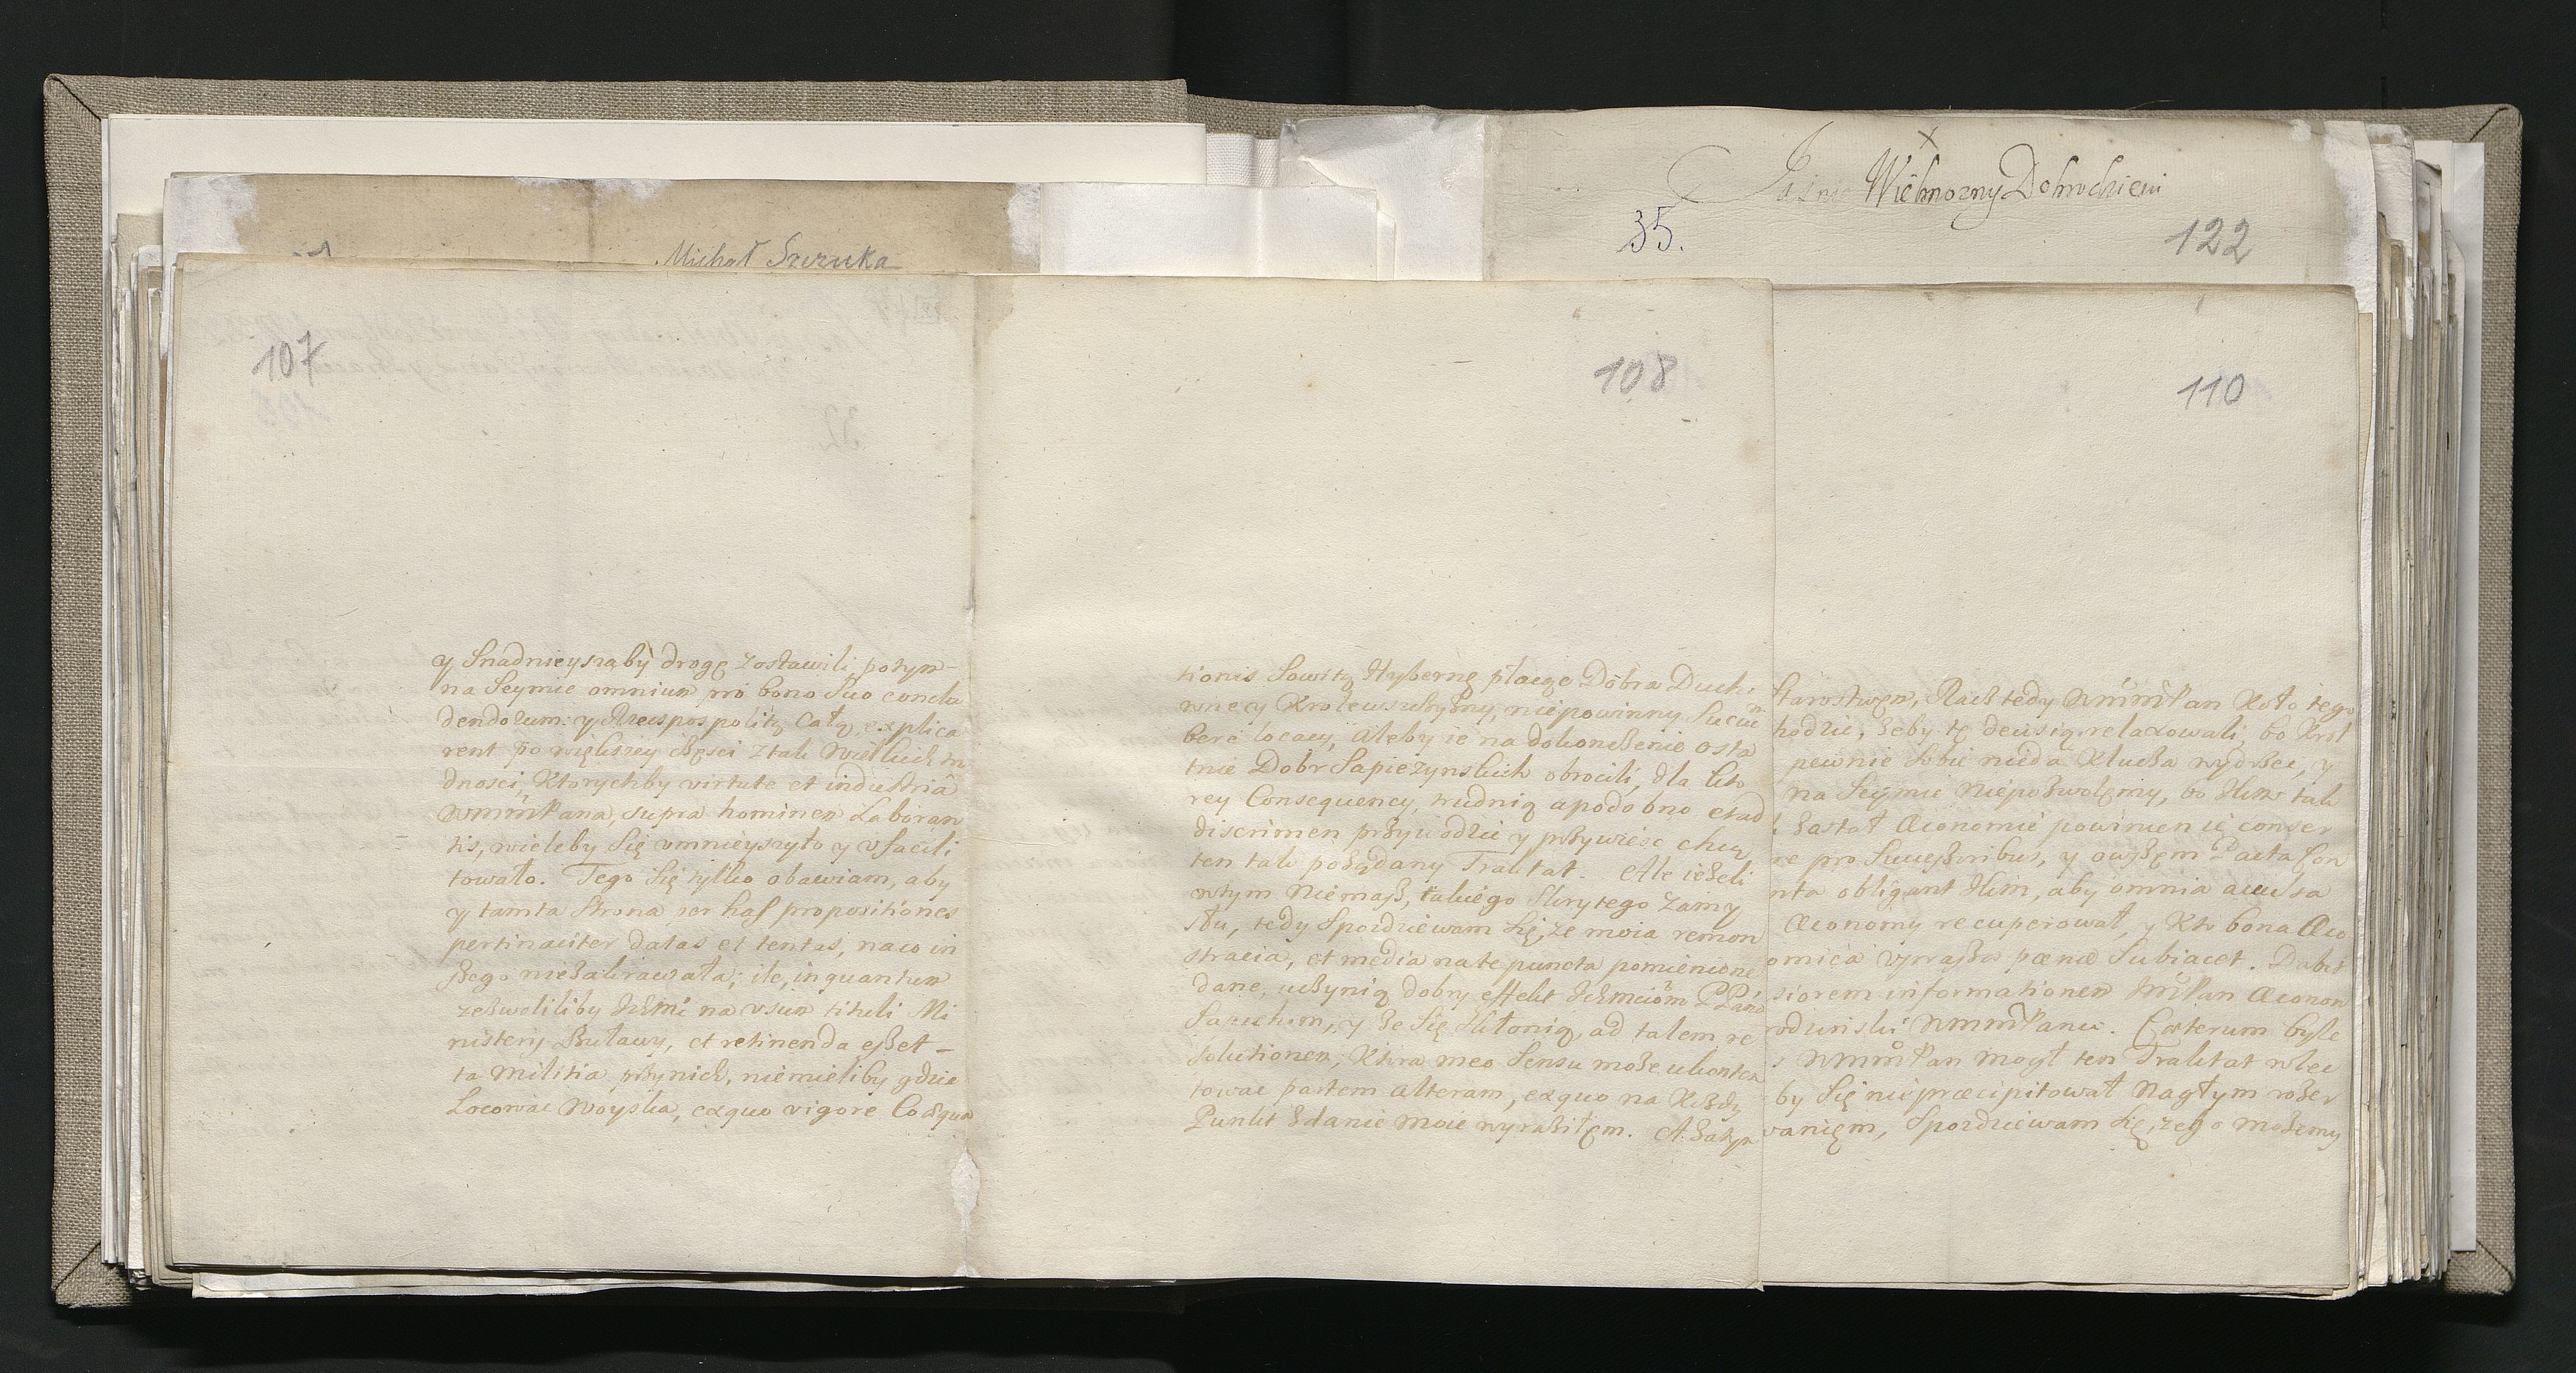 Jaśnie Wielmozny Dobrodzieiu
35.
122
Michał Szczuka
107
y Snadnieyszą by drogę zostawili potym
na Seymie omnium pro bono suo conclu
dendorum: y Rzecspospolitą całą explica
rent po większey części z tak wielkich tru
dności, Ktorychby virtute et industriâ
WMMPana, supra hominem Laboran
tis, wieleby się vmnieyszyło y vfacili
towało. Tego się tylko obawiam, aby
y tamta Strona per has propositiones
pertinaciter datas et tentas, na co in
szego nie zakrawała; ile, in quantum
zezwoliliby Ichmć na vsum tituli Mi
nistery Buławy, et retinenda esset
ta militia przy nich, nie mieliby gdzie
Locować Woyska, ex quo vigore Coæqua
108
tionis Sowitą Hybernę płacąc Dobra Ducho
wne y Krolewszczyzny, nie powinny Succum
bere locacy, a leby ie na dokonczenie osta
tnie Dobr Sapiezynskich obrocili, dla kto
rey Consequency, trudnią a podobno et ad
discrimen przywodzić y przywieść chcą
ten tak pożądany Traktat. Ale ieżeli
w tym niemasz, takiego skrytego zamy
słu, tedy spodziewam się, ze moia remon
stracia, et media na te puncta pomienione
dane, uczynią dobry effekt Ichmciom PPano
Sapiehom, y że się skłonią, ad talem re
solutionem, Ktora meo sensu może ukonten
tować partem alteram, ex quo na Kożdy
Punkt zdanie moie wyraziłem. A zatym
110
Starostwem, Racz tedy WMMPan Koło tego
chodzić, żeby tę decisią relaxowali, bo Krol
pewnie sobie nie da Klucza wydrzec, y
na Seymie nie pozwolemy, bo iako tak
zastał Œconomie powinien ie conser
re pro Successoribus, y owszem Pacta Con
nta obligant , aby omnia avulsa
Œconomy recuperował, y Kto bona Œco
omica vprasza pœnæ subiacet. Dabit
siorem informationem Pan Œconom
rodzinski WMMPanu. Cæterum byle
WMMPan mogł ten Traktat wlec
by się nie præcipitował nagłym rozer
waniem, spodziewam się, że go możemy